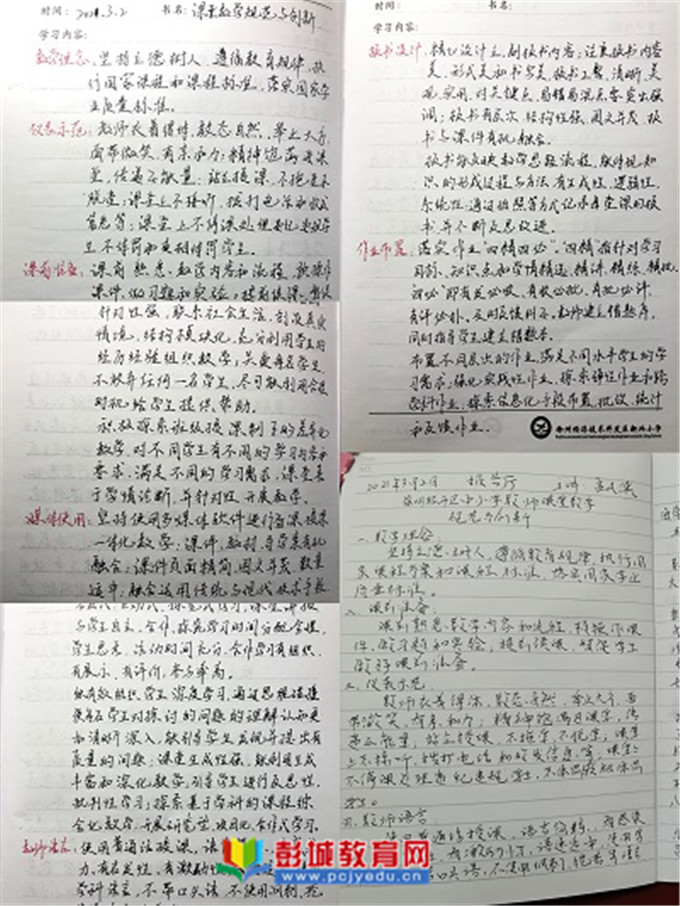 时间：2021.3.2 书名：课堂教学规范与创新
学习内容：
教学理念：坚持立德树人，遵循教育规律，执
行国家课程和课程标准，落实国家学
业质量标准。
仪表示范：教师衣着得体，教态自然，举止大方，
面带微笑，有亲和力；精神饱满进课
堂，传递正能量；站立授课，不拖堂不
脱堂；课堂上不接听、拨打电话和收发
信息等；课堂上不停课处理违纪违规学
生，不体罚和变相体罚学生。
课前准备：课前熟悉教学内容和流程，
课件，做习题和实验；提前候课，
针对性强，联系社会生活，创设真实
情境，结构模块化，充分利用学生的
经历经验组织教学；关爱每名学生，
不放弃任何一名学生，尽可能利用合适
时机给学生提供帮助。
积极探索班级授课制下的差异化
教学，对不同学生有不同的学习内容和
要求，满足不同的学习需求，课堂善
于学情诊断，并针对性开展教学。
媒体使用：坚持使用多媒体软件进行备课授课
一体化教学；课件、教材、导学案有机
融合；课件页面精简，图文并茂，数量
适中；融合运用传统与现代技术手段
与学生自主、合作、探究学习时间分配合理，
学生思考、活动时间充分，合作学习有组织、
有展示、有评价，参与率高。
能有效组织学生深度学习，通过思维碰撞
使每名学生对探讨的问题的理解认知更
加清晰深入，能引导学生发现并提出有
质量的问题；课堂生成性强，能利用生成
丰富和深化教学，引导学生进行反思性、
批判性学习；探索基于学科的课程综
合化教学，开展研究型、项目化、合作式学习。
教师语言：使用普通话授课，语
力，有启发性，有激励性
学科语言，不带口头语，不使用讽刺、挖
时间： 书名：
学习内容：
板书设计：精心设计主、副板书内容；注重板书内容
美、形式美和书写美，板书工整、清晰、美
观、实用，对关键点、易错易混点等突出强
调；板书有层次，结构性强，图文并茂，板
书与课件有机融合。
板书能反映教学思路流程，能体现知
识的形成过程与方法，有生成性、逻辑性、
系统性；通过拍照等方式记录每堂课的板
书，并不断反思改进。
作业布置：落实作业“四精四必”，“四精”指针对学习
目标、知识点和学情精选、精讲、精练、精批，
“四必”即有发必收、有收必批、有批必评、
有评必补。及时反馈纠正，教师建立错题库，
同时指导学生建立错题本。
布置不同层次的作业，满足不同水平学生的学
习需求；强化实践性作业，探索弹性作业和跨
学科作业，探索信息化手段布置、批改、统计
和反馈作业。
徐州经济技术开发区新兴小学
2021年3月2日 报告厅
中小学教师课堂教学
规范与创新
一、教学理念：
坚持立德树人，遵循教育规律，执行国
家课程方案和课程标准，落实国家学业
质量标准。
二、课前准备：
课前熟悉教学内容和流程，
件，做习题和实验，提前候课，
做好课前准备。
三、仪表示范
教师衣着得体，教态自然，举止大方，面
带微笑，有亲和力；精神饱满进课堂，传
递正能量；站立授课，不拖堂不脱堂；课堂
上不接听、拨打电话和收发信息等，课堂上
不停课处理违纪违规学生，不体罚变相体罚
学生。
四、教师语言
彭城教育网
www.pcjyedu.cn